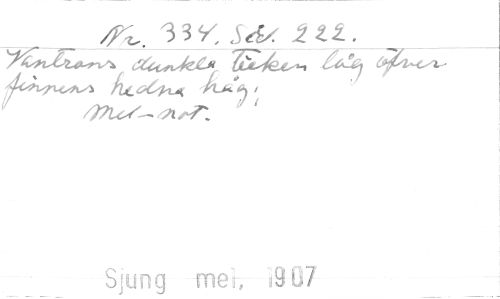 Nr. 334. Sid. 222.
Vantrons dunkla töcken låg öfver
finnens hedna håg;
Mel-not.
Sjung mel, 1907